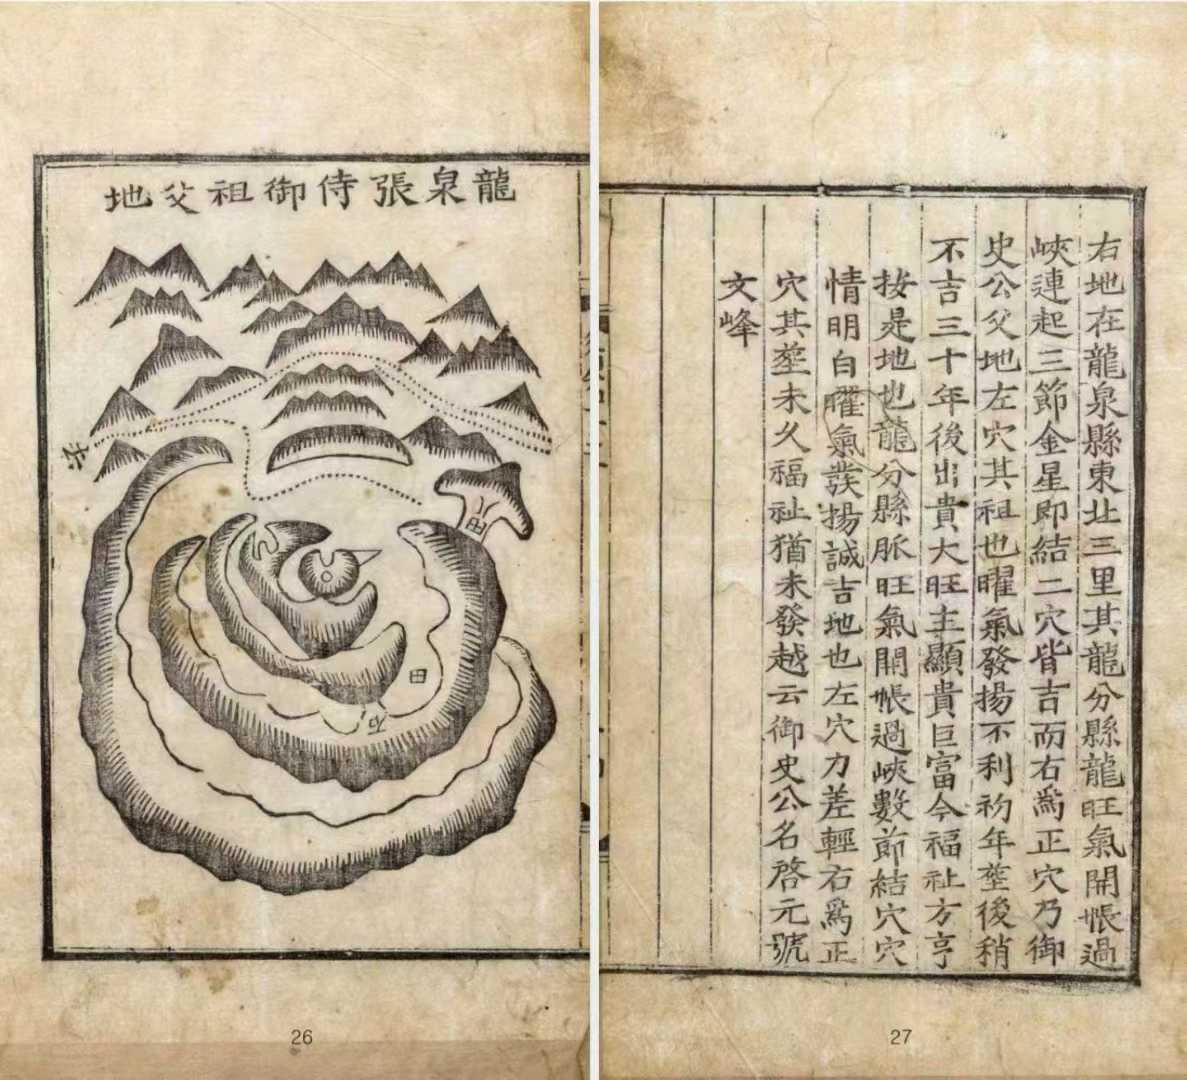 龍泉張侍御祖父地
田
田
石
26
右地在龍泉縣東北三里其龍分縣龍旺氣開帳過
峽連起三節金星即結二穴皆吉而右爲正穴乃御
史公父地左穴其祖也曜氣發揚不利初年塟後稍
不吉三十年後出貴大旺主顯貴巨富今福祉方亨
按是地也龍分縣脈旺氣開帳過峽數節結穴穴
情明白曜氣發揚誠吉地也左穴力差輕右爲正
穴其塟未久福祉猶未發越云御史公名啓元號
文峰
27